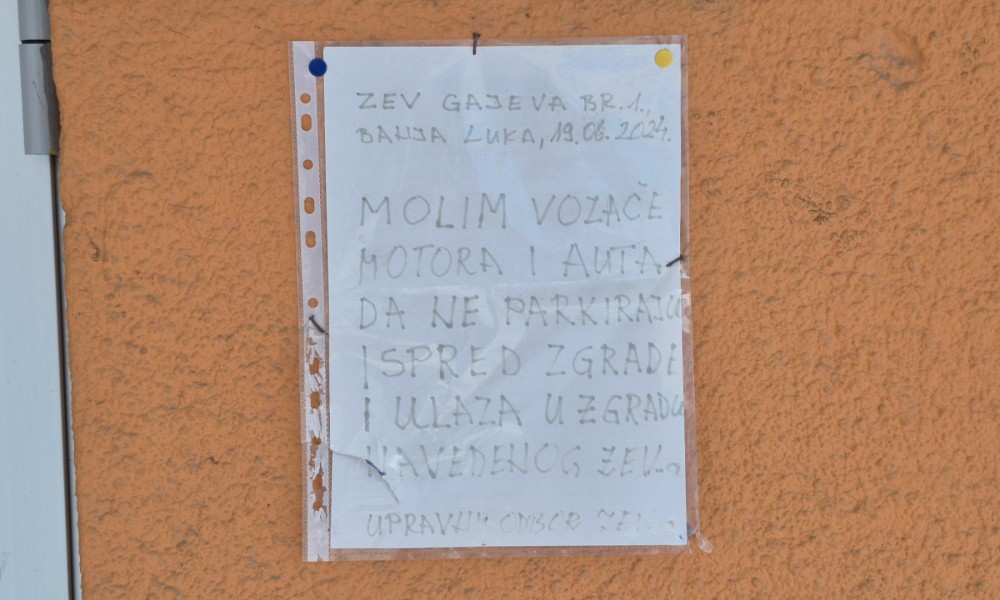 ZEV GAJEVA BR.1.,
BANJA LUKA, 19.06.2024.
MOLIM VOZAČE
MOTORA I AUTA
DA NE PARKIRAJU
ISPRED ZGRADE
I ULAZA U ZGRADU
NAVEDENOG ZEV-a
UPRAVNI ODBOR ZEV-a